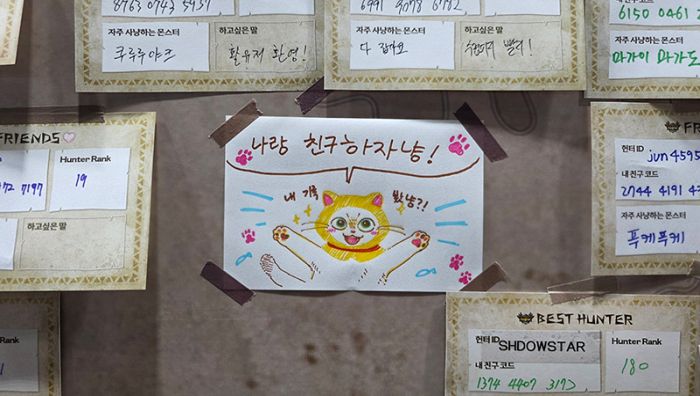 자주 사냥하는 몬스터
쿠루루야크
하고싶은 말
활유저 환영!
자주 사냥하는 몬스터
다 잡아요
하고싶은 말
6150 0461
자주 사냥하는 몬스터
마가이마가도
FRIENDS
Hunter Rank
7197
19
하고싶은 말
나랑 친구하자냥!
내 기록 봤냥?!
헌터 ID
jun4595
내 친구 코드
2744 4191
자주 사냥하는 몬스터
푸케푸케
Hunter Rank
BEST HUNTER
헌터 ID
SHDOWSTAR
Hunter Rank
180
내 친구 코드
1374 4407 3172